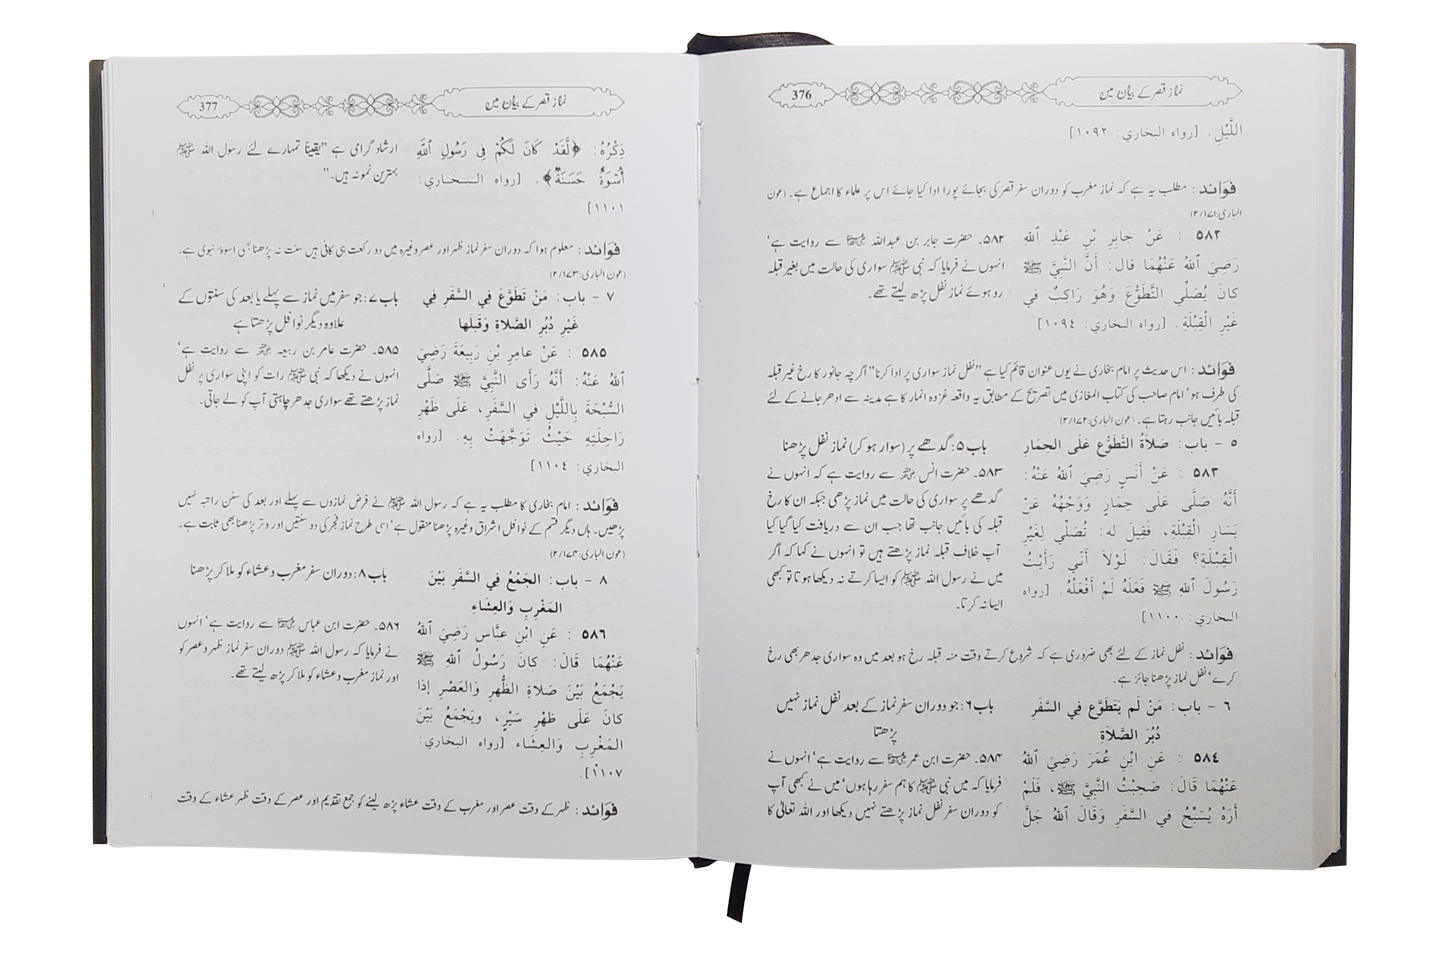 نماز قصر کے بیان میں
376
اللَّيْلِ. [رواه البخاري: ١٠٩٢]
فوَائد : مطلب یہ ہے کہ نماز مغرب کو دوران سفر قصر کی بجائے پورا ادا کیا جائے اس پر علماء کا اجماع ہے۔ (عون
الباری:۲/۱۷۱)
٥٨٢ : عَنْ جابِرِ بْنِ عَبْدِ ٱللهِ
رَضِيَ ٱللهُ عَنْهُما قال: أَنَّ النَّبِيَّ ﷺ
كانَ يُصَلِّي التَّطَوُّعَ وَهُوَ رَاكِبٌ في
غَيْرِ الْقِبْلَةِ. [رواه البخاري: ١٠٩٤]
۵۸۲۔ حضرت جابر بن عبداللہ ؓ سے روایت ہے‘
انہوں نے فرمایا کہ نبی ﷺ سواری کی حالت میں بغیر قبلہ
رو ہوئے نماز نفل پڑھ لیتے تھے۔
فوَائد : اس حدیث پر امام بخاری نے یوں عنوان قائم کیا ہے ”نفل نماز سواری پر ادا کرنا“ اگرچہ جانور کا رخ غیر قبلہ
کی طرف ہو‘ امام صاحب کی کتاب المغازی میں تصریح کے مطابق یہ واقعہ غزوہ انمار کا ہے مدینہ سے ادھر جانے کے لئے
قبلہ بائیں جانب رہتا ہے۔ (عون الباری:۲/۱۷۲)
٥ - باب: صَلاَةُ التَّطَوُّعِ عَلَى الحِمَارِ
باب ۵: گدھے پر (سوار ہو کر) نماز نفل پڑھنا
٥٨٣ : عَنْ أَنَسٍ رَضِيَ ٱللهُ عَنْهُ:
أَنَّهُ صَلَّى عَلَى حِمَارٍ وَوَجْهُهُ عَنْ
يَسَارِ الْقِبْلَةِ، فَقِيلَ له: تُصَلِّي لِغَيْرِ
الْقِبْلَةِ؟ فَقَالَ: لَوْلاَ أَنِّي رَأَيْتُ
رَسُولَ ٱللهِ ﷺ فَعَلَهُ لَمْ أَفْعَلْهُ. [رواه
البخاري: ١١٠٠]
۵۸۳۔ حضرت انس ؓ سے روایت ہے کہ انہوں نے
گدھے پر سواری کی حالت میں نماز پڑھی جبکہ ان کا رخ
قبلہ کی بائیں جانب تھا جب ان سے دریافت کیا گیا کیا
آپ خلاف قبلہ نماز پڑھتے ہیں تو انہوں نے کہا کہ اگر
میں نے رسول اللہ ﷺ کو ایسا کرتے نہ دیکھا ہوتا تو کبھی
ایسا نہ کرتا۔
فوَائد : نفل نماز کے لئے بھی ضروری ہے کہ شروع کرتے وقت منہ قبلہ رخ ہو بعد میں وہ سواری جدھر بھی رخ
کرے‘ نفل نماز پڑھنا جائز ہے۔
٦ - باب: مَنْ لَم يَتَطَوَّع فِي السَّفَرِ
دُبُرَ الصَّلاَةِ
باب ۶: جو دوران سفر نماز کے بعد نفل نماز نہیں
پڑھتا
٥٨٤ : عَنِ ابْنِ عُمَرَ رَضِيَ ٱللهُ
عَنْهُما قَالَ: صَحِبْتُ النَّبِيَّ ﷺ، فَلَمْ
أَرَهُ يُسَبِّحُ في السَّفَرِ وَقَالَ ٱللهُ جَلَّ
۵۸۴۔ حضرت ابن عمر ؓ سے روایت ہے‘ انہوں نے
فرمایا کہ میں نبی ﷺ کا ہم سفر رہا ہوں‘ میں نے کبھی آپ
کو دوران سفر نفل نماز پڑھتے نہیں دیکھا اور اللہ تعالیٰ کا
نماز قصر کے بیان میں
377
ذِكْرُهُ: ﴿لَّقَدْ كَانَ لَكُمْ فِى رَسُولِ ٱللَّهِ
أُسْوَةٌ حَسَنَةٌ﴾. [رواه البخاري:
١١٠١]
ارشاد گرامی ہے ”یقیناً تمہارے لئے رسول اللہ ﷺ
بہترین نمونہ ہیں۔“
فوَائد : معلوم ہوا کہ دوران سفر نماز ظہر اور عصر وغیرہ میں دو رکعت ہی کافی ہیں سنت نہ پڑھنا ہی اسوۂ نبوی ہے۔
(عون الباری:۲/۱۷۳)
٧ - باب: مَنْ تَطَوَّعَ فِي السَّفَرِ فِي
غَيْرِ دُبُرِ الصَّلاةِ وَقَبلَها
باب ۷: جو سفر میں نماز سے پہلے یا بعد کی سنتوں کے
علاوہ دیگر نوافل پڑھتا ہے
٥٨٥ : عَنْ عامِرِ بْنِ رَبِيعَةَ رَضِيَ
ٱللهُ عَنْهُ: أَنَّهُ رَأَى النَّبِيَّ ﷺ صَلَّى
السُّبْحَةَ بِاللَّيْلِ في السَّفَرِ، عَلَى ظَهْرِ
رَاحِلَتِهِ حَيْثُ تَوَجَّهَتْ بِهِ. [رواه
البخاري: ١١٠٤]
۵۸۵۔ حضرت عامر بن ربیعہ ؓ سے روایت ہے‘
انہوں نے دیکھا کہ نبی ﷺ رات کو اپنی سواری پر نفل
نماز پڑھتے تھے سواری جدھر چاہتی آپ کو لے جاتی۔
فوَائد : امام بخاری کا مطلب یہ ہے کہ رسول اللہ ﷺ نے فرض نمازوں سے پہلے اور بعد کی سنن راتبہ نہیں
پڑھیں۔ ہاں دیگر قسم کے نوافل اشراق وغیرہ پڑھنا منقول ہے‘ اسی طرح نماز فجر کی دو سنتیں اور وتر پڑھنا بھی ثابت ہے۔
(عون الباری:۲/۱۷۴)
٨ - باب: الجَمْعُ فِي السَّفَرِ بَيْنَ
المَغْرِبِ وَالعِشَاءِ
باب ۸: دوران سفر مغرب و عشاء کو ملا کر پڑھنا
٥٨٦ : عَنِ ابْنِ عبَّاس رَضِيَ ٱللهُ
عَنْهُما قَالَ: كانَ رَسُولُ ٱللهِ ﷺ
يَجْمَعُ بَيْنَ صَلاةِ الظُّهرِ وَالعَصْرِ إذَا
كانَ عَلَى ظهْرِ سَيْرٍ، ويَجْمَعُ بَيْنَ
المَغْرِبِ والعِشَاء [رواه البخاري:
١١٠٧].
۵۸۶۔ حضرت ابن عباس ؓ سے روایت ہے‘ انہوں
نے فرمایا کہ رسول اللہ ﷺ دوران سفر نماز ظہر و عصر کو
اور نماز مغرب و عشاء کو ملا کر پڑھ لیتے تھے۔
فوَائد : ظہر کے وقت عصر اور مغرب کے وقت عشاء پڑھ لینے کو جمع تقدیم اور عصر کے وقت ظہر عشاء کے وقت